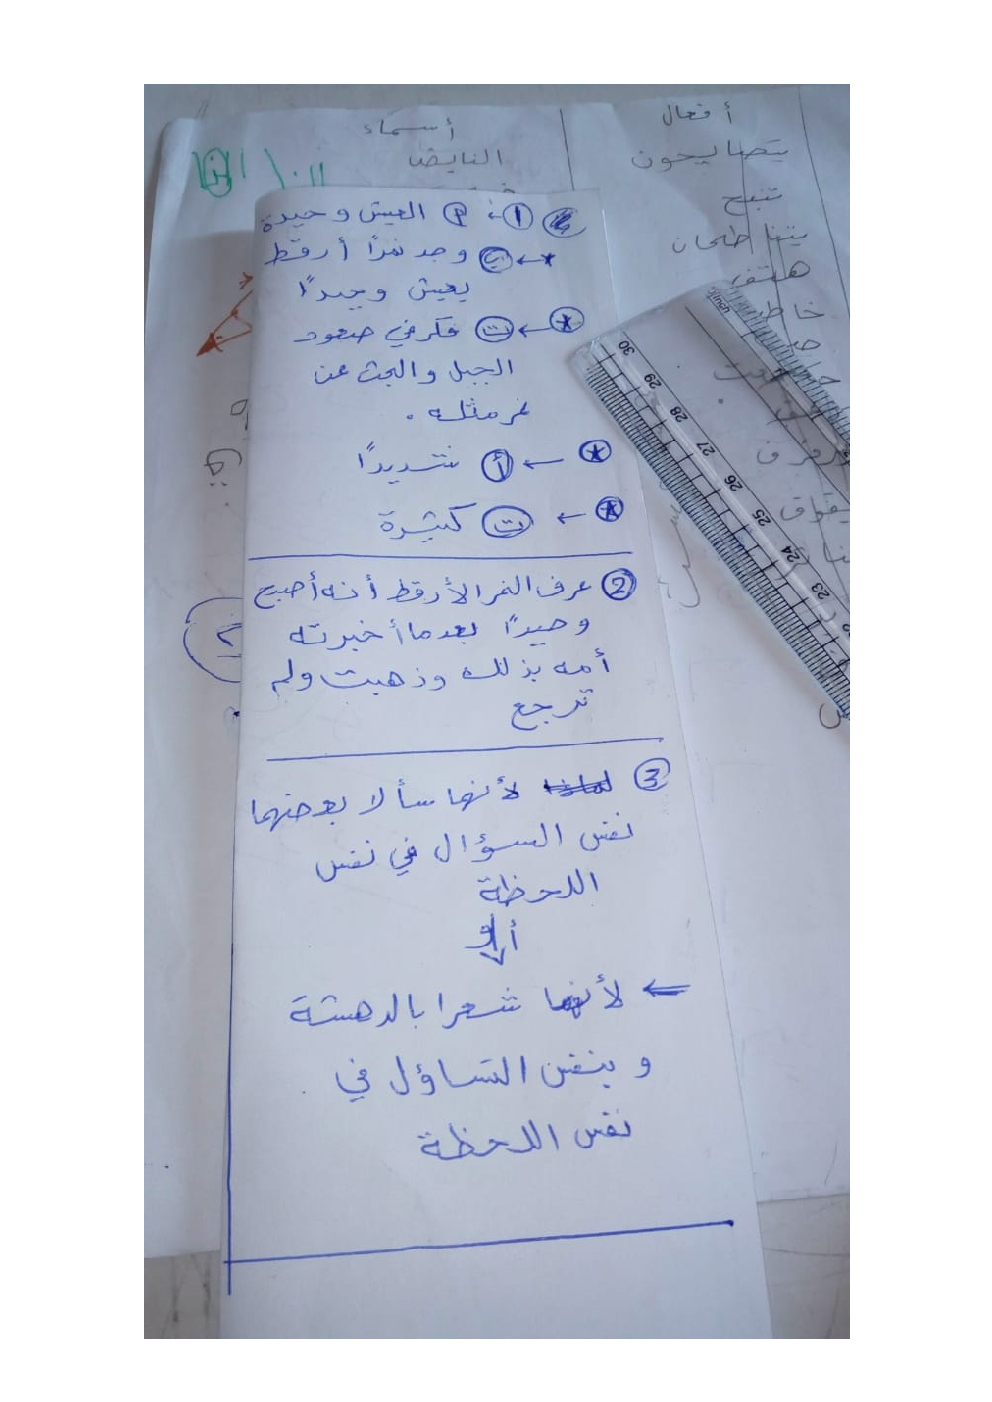 أسماء
النايض
أفعال
يتصايحون
تنبح
يتناطحان
هتف
خاطر
① أ العيش وحيدة
ب وجد نمرًا أرقط
يعيش وحيدًا
ت فكر في صعود
الجبل والبحث عن
نمر مثله .
أ شديدًا
ت كثيرة
② عرف النمر الأرقط أنه أصبح
وحيدًا بعدما أخبرته
أمه بذلك وذهبت ولم
ترجع
③ لأنهما سألا بعضهما
نفس السؤال في نفس
اللحظة
أو
لأنهما شعرا بالدهشة
و بنفس التساؤل في
نفس اللحظة
inch
30
29
28
27
26
25
24
23